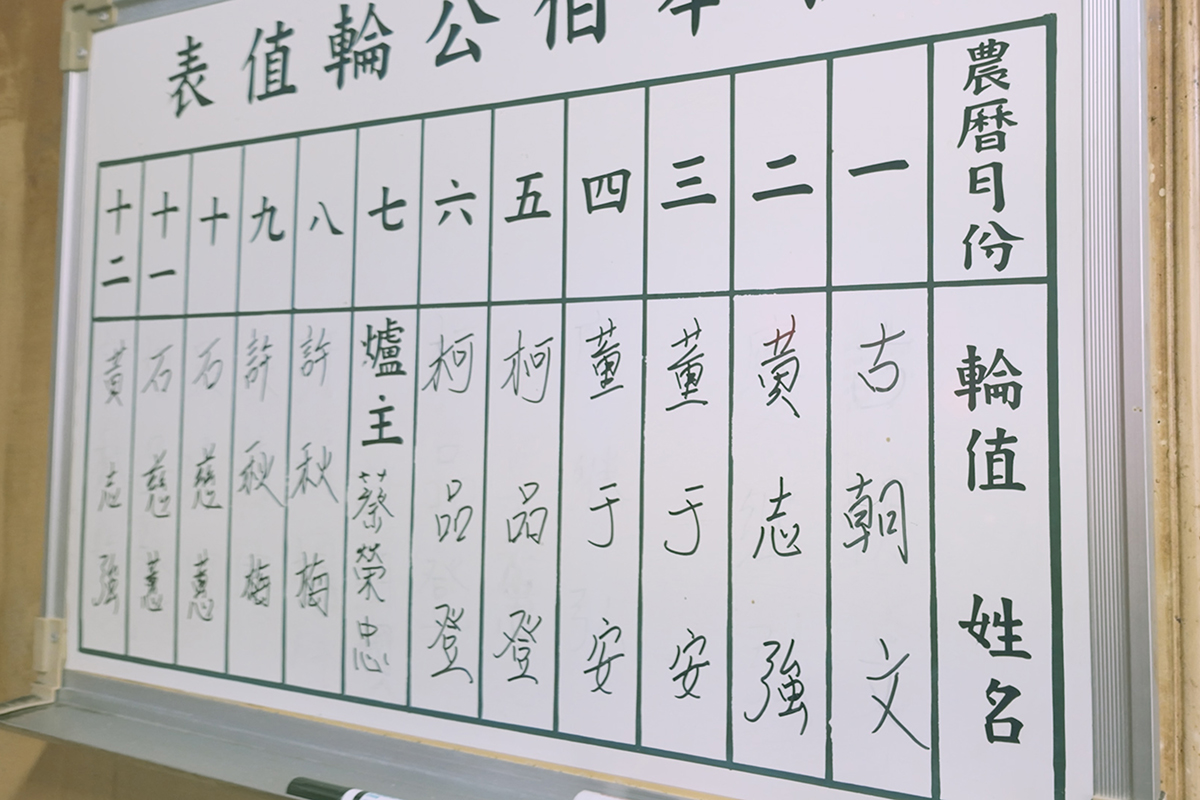 伯公輪值表
農曆月份
輪值姓名
一
古朝文
二
黃志強
三
董于安
四
董于安
五
柯品登
六
柯品登
七
爐主蔡榮忠
八
許秋梅
九
許秋梅
十
石慈蕙
十一
石慈蕙
十二
黃志強